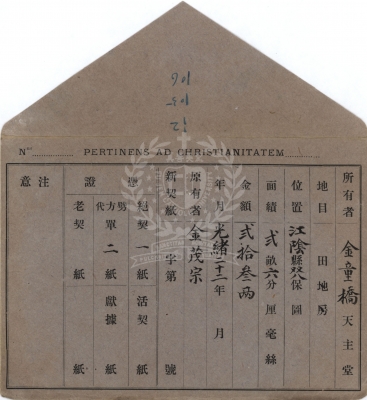 106
No PERTINENS AD CHRISTIANITATEM
所有者 金童橋 天主堂
地目 田地房
位置 江陰縣 保圖
面積 弍畝六分 厘毫絲
金額 弍拾叁两
年月 光緒二十二年 月
原有者 金茂宗
新契紙 字第 號
憑證
絕契 一 紙 活契 紙
代方單 二 紙 獻據 紙
老契 紙
注意